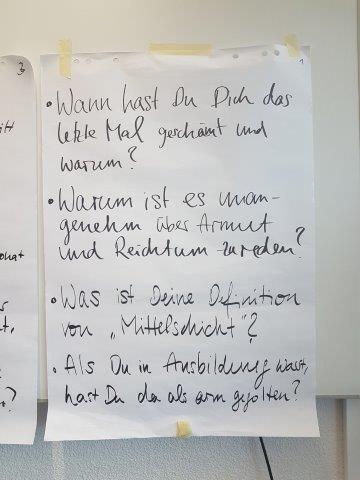 3
itt
onat
1
• Wann hast Du Dich das
letzte Mal geschämt und
warum?
• Warum ist es unan-
genehm über Armut
und Reichtum zu reden?
• Was ist Deine Definition
von „Mittelschicht"?
• Als Du in Ausbildung warst,
hast Du da als arm gegolten?